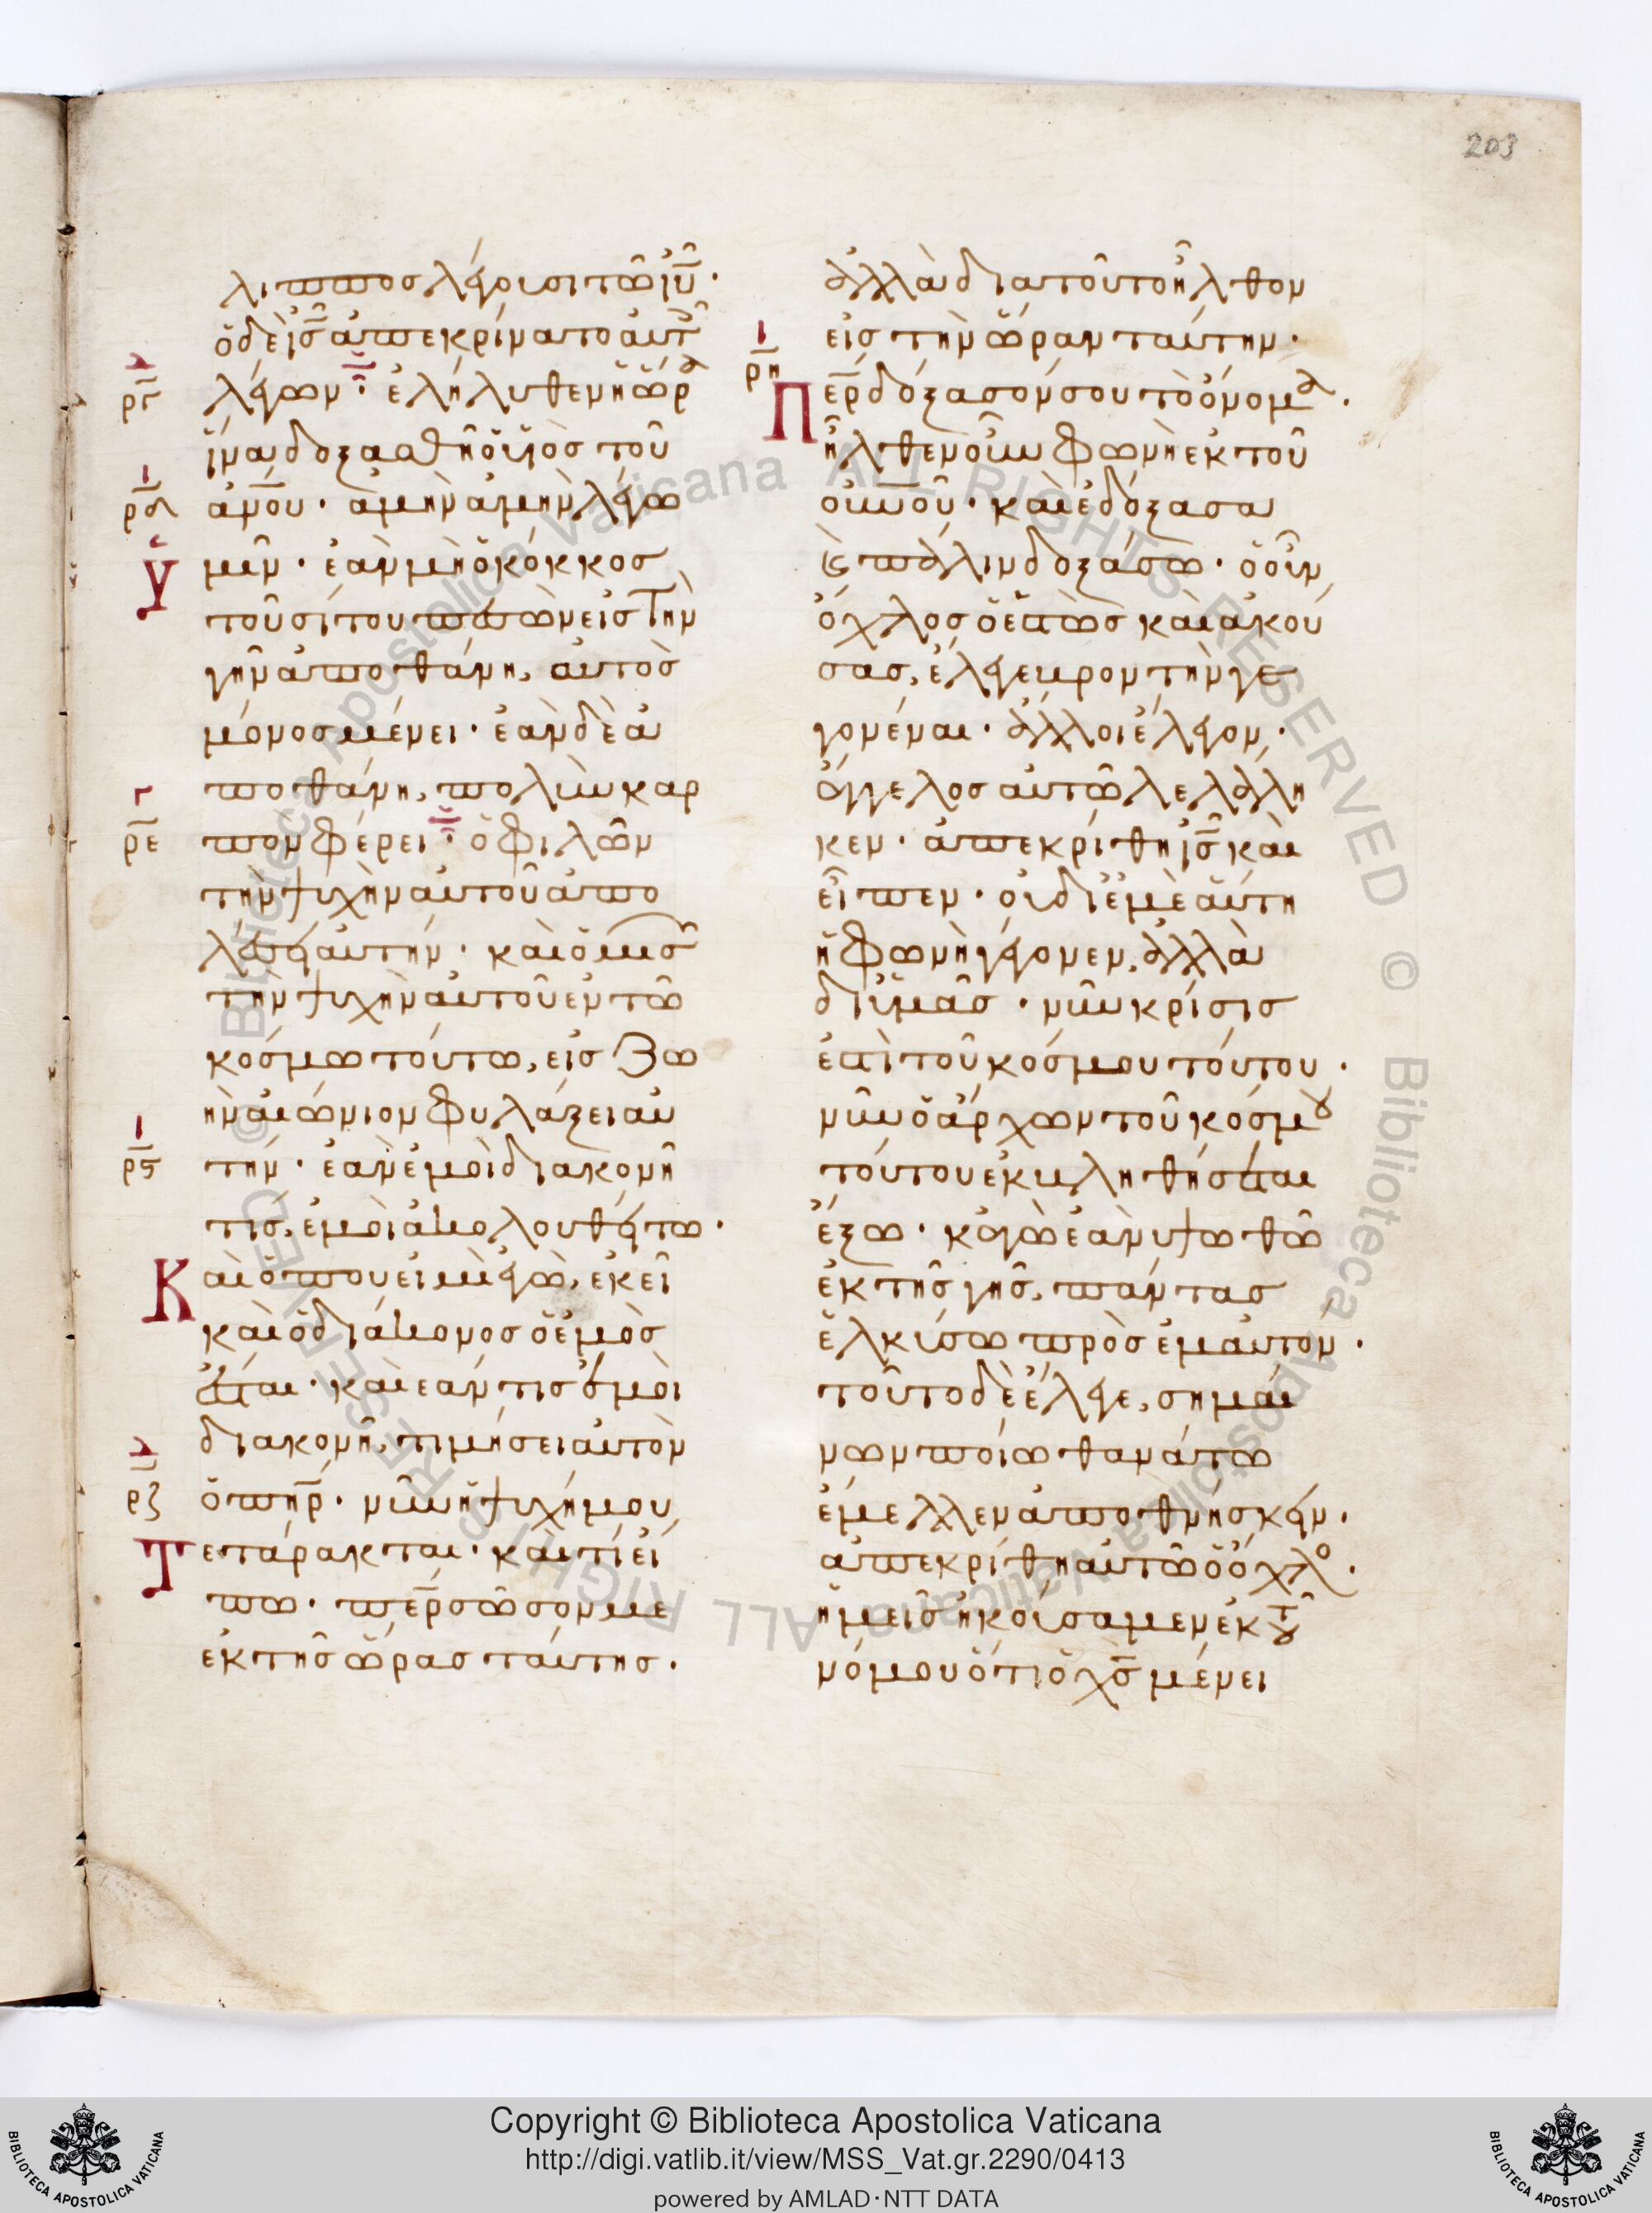 203
λιπποσ λέγουσι τῶ ἰῦ·
ὁ δὲ ἰσ ἀπεκρίνατο αὐτ
λέγων· ἐλήλυθεν ἡ ὥρα
ἵνα δοξασθῆ ὁ υἱὸσ τοῦ
ἀνου· ἀμὴν ἀμὴν λέγω
Ὑμῖν· ἐὰν μὴ ὁ κόκκοσ
τοῦ σίτου πεσὼν εἰσ τὴν
γῆν ἀποθάνη, αὐτὸσ
μόνοσ μένει· ἐὰν δὲ ἀ
ποθάνη, πολὺν καρ
πὸν φέρει· ὁ φιλῶν
τὴν ψυχὴν αὐτοῦ ἀπο
λέσει αὐτήν· καὶ ὁ μισ
τὴν ψυχὴν αὐτοῦ ἐν τῶ
κόσμω τούτω, εἰσ ζω
ὴν αἰώνιον φυλάξει αὐ
τήν· ἐὰν ἐμοὶ διακονῆ
τισ, ἐμοὶ ἀκολουθείτω·
Καὶ ὅπου εἰμὶ ἐγὼ, ἐκεῖ
καὶ ὁ διάκονοσ ὁ ἐμὸσ
ἔσται· καὶ ἐάν τισ ἐμοὶ
διακονῆ, τιμήσει αὐτὸν
ὁ πηρ· νῦν ἡ ψυχή μου
Τετάρακται· καὶ τί εἴ
πω· περ σῶσόν με
ἐκ τῆσ ὥρασ ταύτησ·
ἀλλὰ διατοῦτο ἦλθον
εἰσ τὴν ὥραν ταύτην·
Περ δόξασόν σου τὸ ὄνομα·
ἦλθεν οὖν φωνὴ ἐκ τοῦ
οὐνοῦ· καὶ ἐδόξασα
καὶ πάλιν δοξάσω· ὁ οὖν
ὄχλοσ ὁ ἑστὼσ καὶ ἀκού
σασ, ἔλεγε βροντὴν γε
γονέναι· ἄλλοι ἔλεγον·
ἄγγελοσ αὐτῶ λελάλη
κεν· ἀπεκρίθη ἰσ καὶ
εἶπεν· οὐ δι ἐμὲ αὕτη
ἡ φωνὴ γέγονεν, ἀλλὰ
δι ὑμᾶσ· νῦν κρίσισ
ἐστὶ τοῦ κόσμου τούτου·
νῦν ὁ ἄρχων τοῦ κόσμου
τούτου ἐκβληθήσεται
ἔξω· κἀγὼ ἐὰν ὑψωθῶ
ἐκ τῆσ γῆσ, πάντασ
ἑλκύσω πρὸσ ἐμαυτόν·
τοῦτο δὲ ἔλεγε, σημαί
νων ποίω θανάτω
ἔμελλεν ἀποθνήσκειν·
ἀπεκρίθη αὐτῶ ὁ ὄχλο·
ἡμεῖσ ἠκούσαμεν ἐκ τοῦ
νόμου ὅτι ὁ χσ μένει
ργ
ρδ
ρε
ρς
ρζ
ρη
© Biblioteca Apostolica Vaticana ALL RIGHTS RESERVED © Biblioteca Apostolica Vaticana ALL RIGHTS RESERVED
BIBLIOTECA APOSTOLICA VATICANA
Copyright © Biblioteca Apostolica Vaticana
http://digi.vatlib.it/view/MSS_Vat.gr.2290/0413
powered by AMLAD·NTT DATA
BIBLIOTECA APOSTOLICA VATICANA